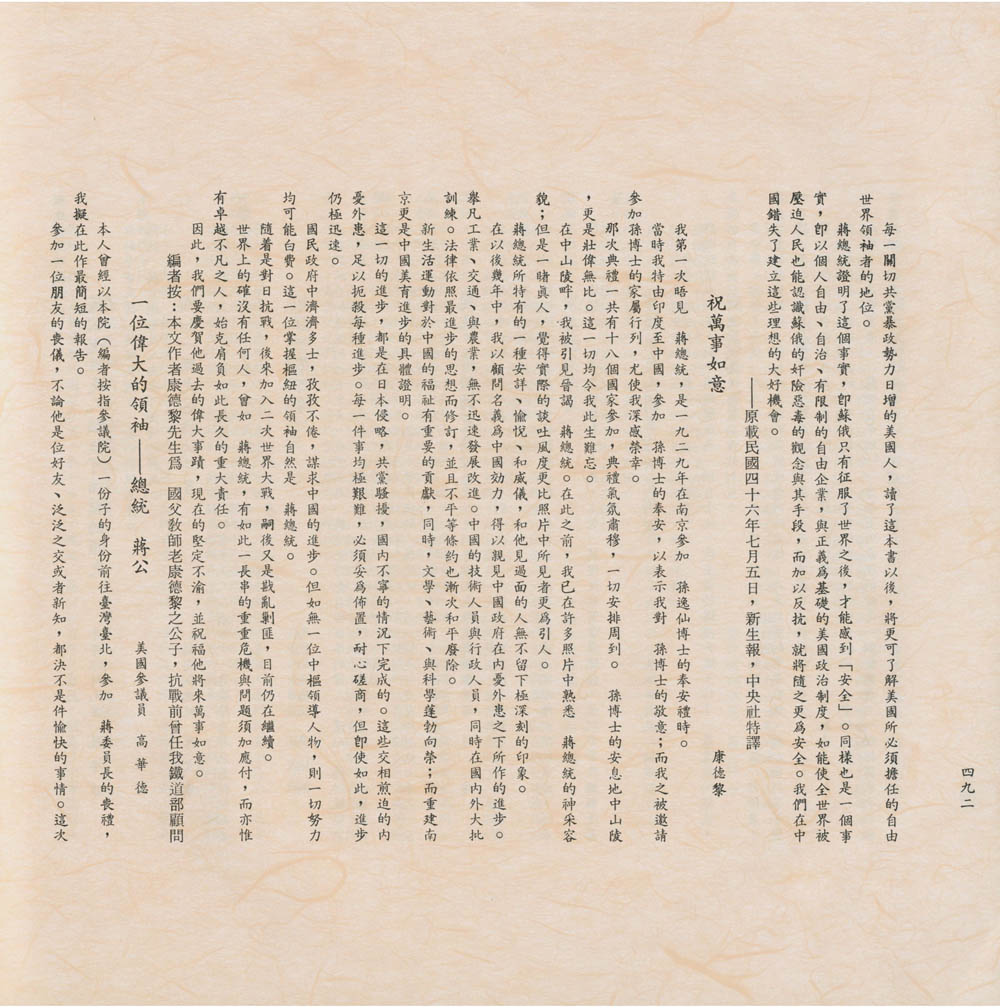 四九二
每一關切共黨暴政勢力日增的美國人，讀了這本書以後，將更可了解美國所必須擔任的自由
世界領袖者的地位。
蔣總統證明了這個事實，卽蘇俄只有征服了世界之後，才能感到「安全」。同樣也是一個事
實，卽以個人自由、自治、有限制的自由企業，與正義爲基礎的美國政治制度，如能使全世界被
壓迫人民也能認識蘇俄的奸險惡毒的觀念與其手段，而加以反抗，就將隨之更爲安全。我們在中
國錯失了建立這些理想的大好機會。
──原載民國四十六年七月五日，新生報，中央社特譯
祝萬事如意
康德黎
我第一次晤見　蔣總統，是一九二九年在南京參加　孫逸仙博士的奉安禮時。
當時我特由印度至中國，參加　孫博士的奉安，以表示我對　孫博士的敬意；而我之被邀請
參加孫博士的家屬行列，尤使我深感榮幸。
那次典禮一共有十八個國家參加，典禮氣氛肅穆，一切安排周到。　孫博士的安息地中山陵
，更是壯偉無比。這一切均令我此生難忘。
在中山陵畔，我被引見晉謁　蔣總統。在此之前，我已在許多照片中熟悉　蔣總統的神采容
貌；但是一睹眞人，覺得實際的談吐風度更比照片中所見者更爲引人。
蔣總統所特有的一種安詳、愉悅、和威儀，和他見過面的人無不留下極深刻的印象。
在以後幾年中，我以顧問名義爲中國効力，得以親見中國政府在內憂外患之下所作的進步。
舉凡工業、交通、與農業，無不迅速發展改進。中國的技術人員與行政人員，同時在國內外大批
訓練。法律依照最進步的思想而修訂，並且不平等條約也漸次和平廢除。
新生活運動對於中國的福祉有重要的貢獻，同時，文學、藝術、與科學蓬勃向榮；而重建南
京更是中國美育進步的具體證明。
這一切的進步，都是在日本侵略，共黨騷擾，國內不寧的情況下完成的。這些交相煎迫的內
憂外患，足以扼殺每種進步。每一件事均極艱難，必須妥爲佈置，耐心磋商，但卽使如此，進步
仍極迅速。
國民政府中濟濟多士，孜孜不倦，謀求中國的進步。但如無一位中樞領導人物，則一切努力
均可能白費。這一位掌握樞紐的領袖自然是　蔣總統。
隨着是對日抗戰，後來加入二次世界大戰，嗣後又是戡亂剿匪，目前仍在繼續。
世界上的確沒有任何人，曾如　蔣總統，有如此一長串的重重危機與問題須加應付，而亦惟
有卓越不凡之人，始克肩負如此長久的重大責任。
因此，我們要慶賀他過去的偉大事蹟，現在的堅定不渝，並祝福他將來萬事如意。
編者按：本文作者康德黎先生爲　國父敎師老康德黎之公子，抗戰前曾任我鐵道部顧問
一位偉大的領袖──總統　蔣公
美國參議員　高華德
本人曾經以本院（編者按指參議院）一份子的身份前往臺灣臺北，參加　蔣委員長的喪禮，
我擬在此作最簡短的報告。
參加一位朋友的喪儀，不論他是位好友、泛泛之交或者新知，都決不是件愉快的事情。這次